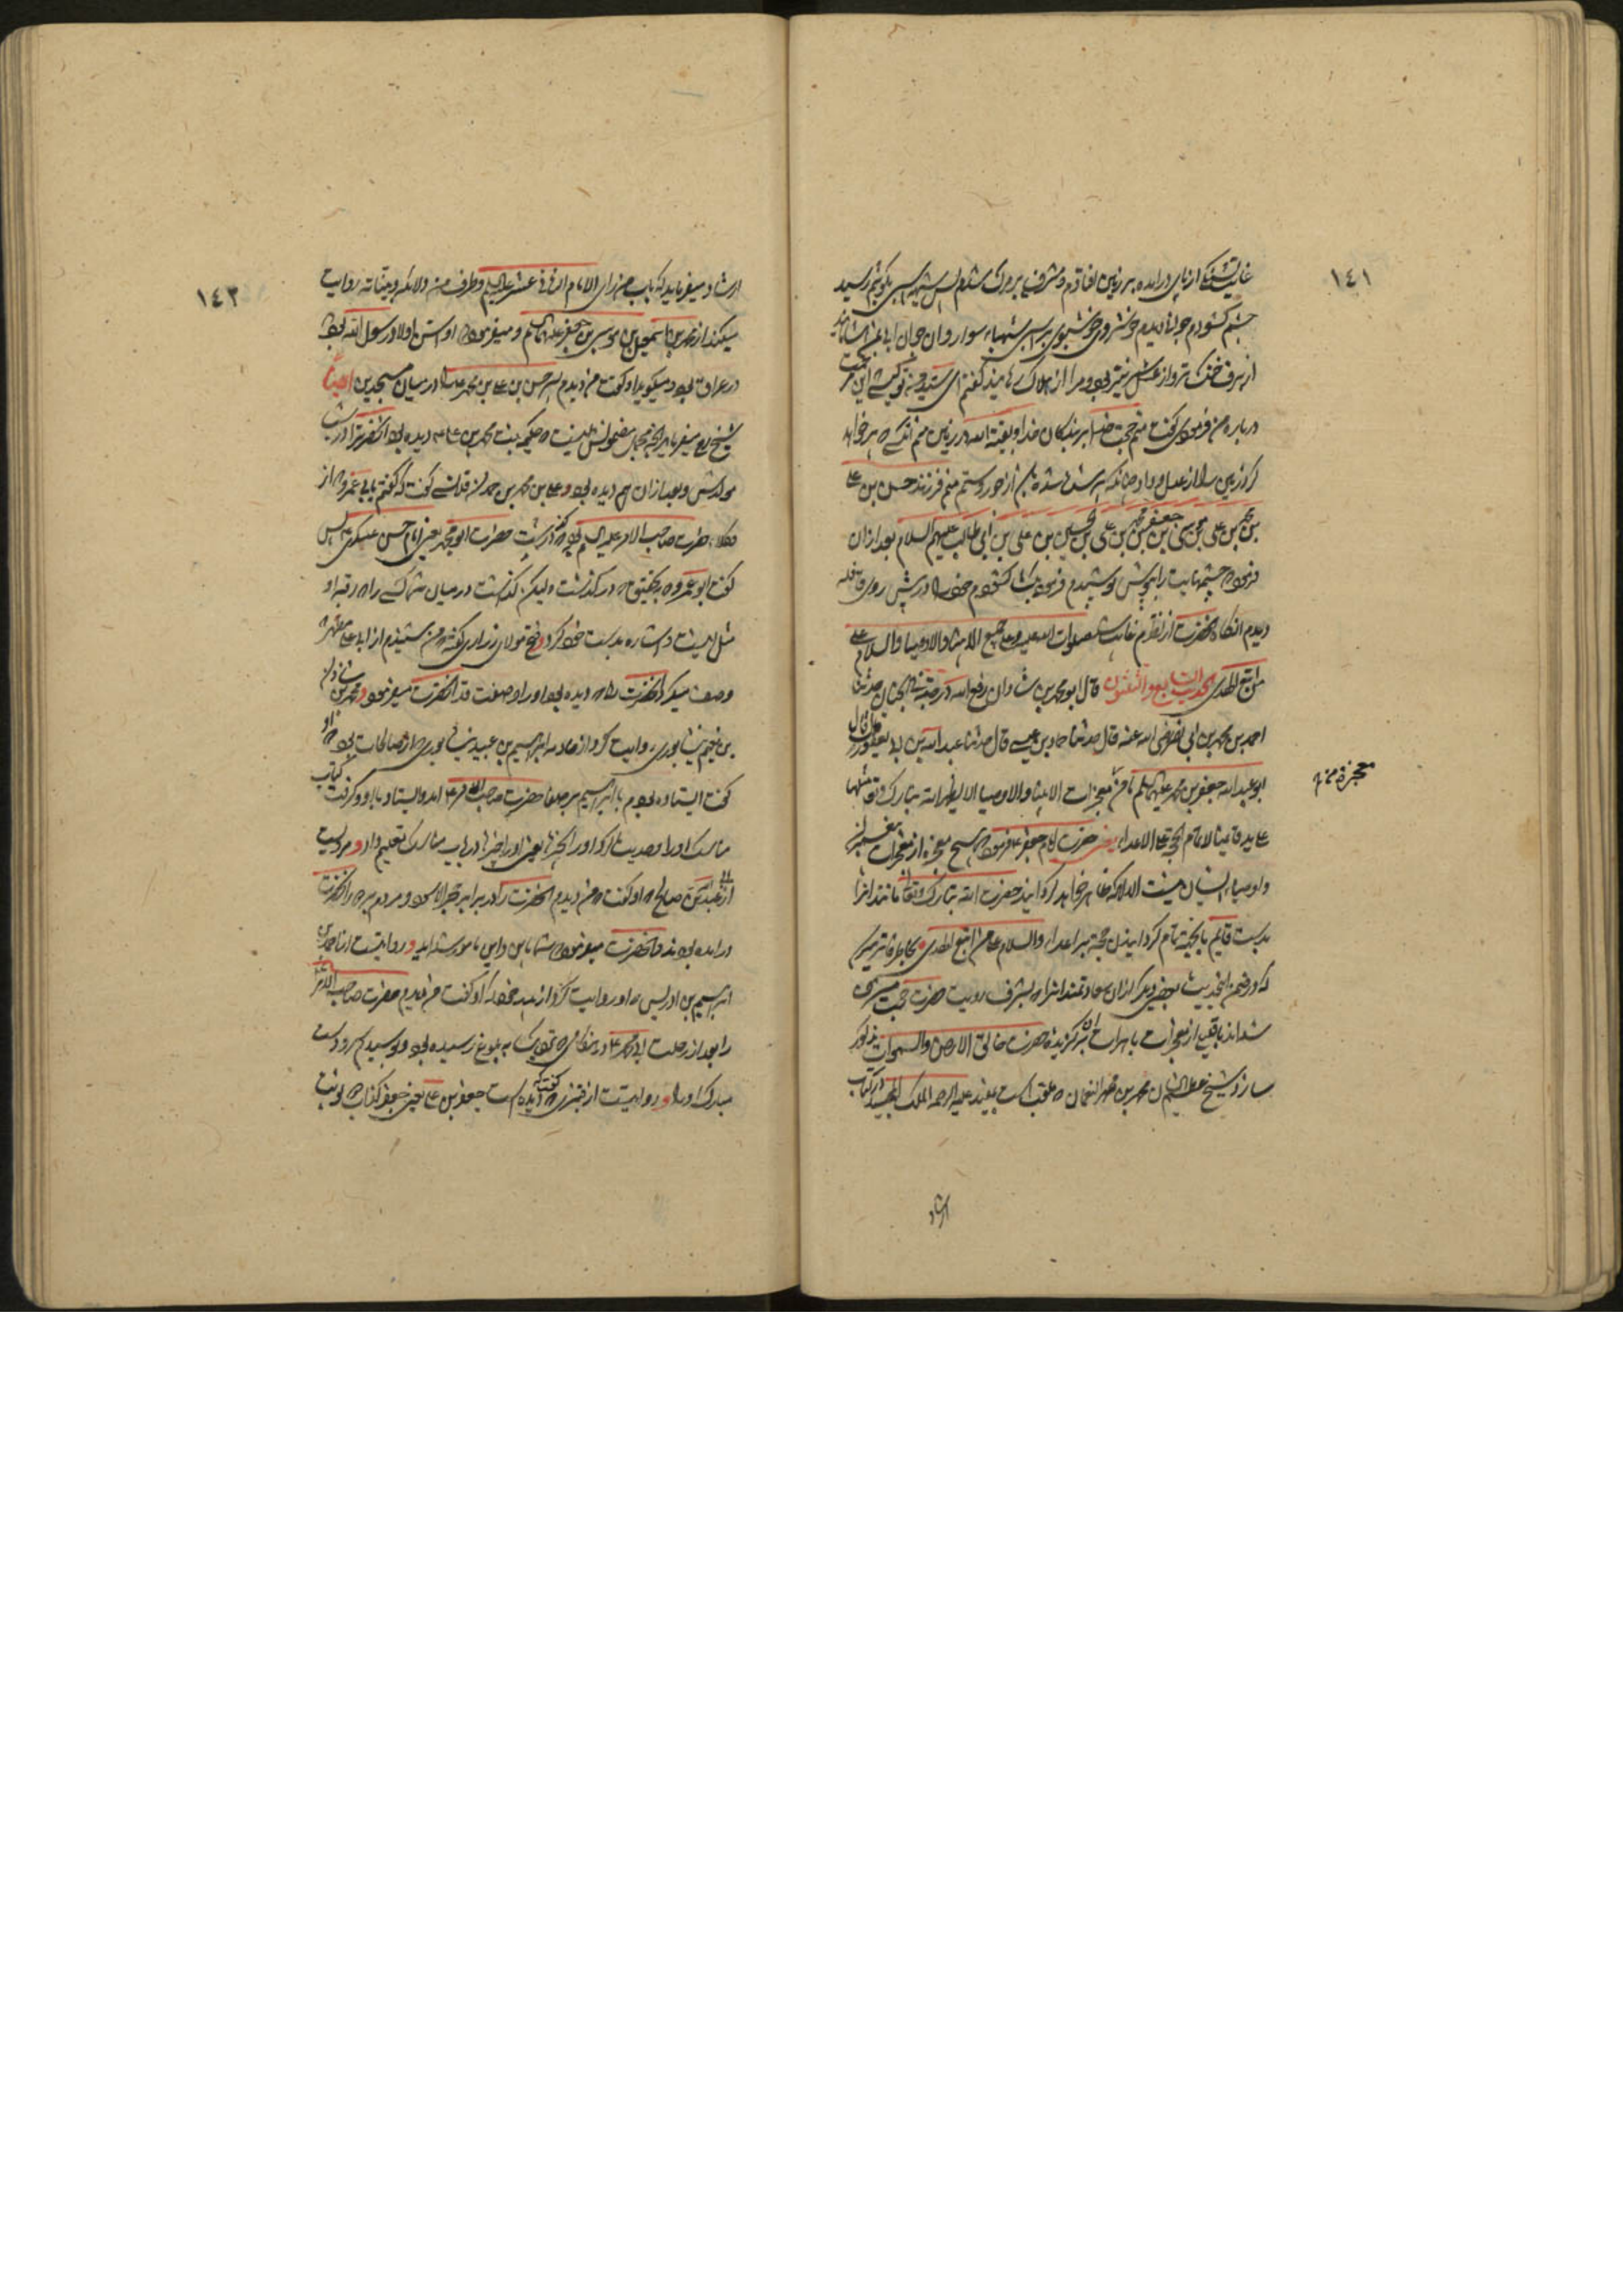 ١٤١
غایت تشنگی از پای درآمده بر زمین افتادم و مشرف بر مرگ شدم پس شیهه اسبی بگوشم رسید
چشم گشودم جوانی دیدم خوشروی و خوشبوی بر اسبی شهباء سوار و آن جوان آبی بمن آشامانید
از برف خنک‌تر و از عسل شیرین‌تر بود و مرا از هلاک رهانید گفتم ای سیدی تو کیستی این مرحمت
درباره من فرمودی گفت منم حجت خدا بر بندگان خدا و بقیة الله در زمین منم آنکسی که پر خواهد
کرد زمین را از عدل و داد چنانکه پر شده باشد از جور و ستم منم فرزند حسن بن علی
بن محمد بن علی بن موسی بن جعفر بن محمد بن علی بن الحسین بن علی بن ابی طالب علیهم السلام بعد از آن
فرمود چشمهایت را بپوش پوشیدم فرمود بگشا گشودم خود را در پیش روی قافله
دیدم آنگاه آنحضرت از نظرم غایب شد صلوات الله علیه و علی جمیع الانبیاء والاوصیاء والسلام علی
من اتبع الهدی الحدیث التاسع والثلثون قال ابو محمد بن شاذان رفع الله درجته فی الجنان حدثنا
احمد بن محمد بن ابی نصر رضی الله عنه قال حدثنا حماد بن عیسی قال حدثنا عبد الله بن ابی یعفور قال قال
ابو عبد الله جعفر بن محمد علیهما السلام ما من معجزة من معجزات الانبیاء والاوصیاء الا یظهر الله تبارک وتعالی مثلها
علی ید قائمنا لاتمام الحجة علی الاعداء یعنی حضرت امام جعفر ع فرمود که هیچ معجزه از معجزات پیغمبران
و اوصیاء ایشان نیست الا آنکه ظاهر خواهد گردانید حضرت الله تبارک وتعالی مانند آنرا
بدست قایم ما بجهة تمام گردانیدن حجة بر اعداء والسلام علی من اتبع الهدی بخاطر فاتر میرسد
که در ضمن این حدیث بعضی دیگر از آن سعادتمندانرا که بشرف رویت حضرت حجت مشرف
شده‌اند با بعضی از معجزات باهرات آن برگزیده حضرت خالق الارض والسموات مذکور
سازد شیخ عظیم الشان محمد بن محمد النعمان که ملقب است بمفید علیه الرحمة الملک المجید در کتاب
معجزه منه
ارشاد
١٤٢
ارشاد میفرماید که باب من رای الامام الثانی عشر علیه السلام وطرف من دلائله وبیناته روایت
میکند از محمد بن اسمعیل بن موسی بن جعفر علیهما السلام و میفرمود که او اسن اولاد رسول الله بود
در عراق بود و میگوید او گفت من دیدم پسر حسن بن علی بن محمد علیهم السلام را در میان مسجدین ایضا
شیخ مفید میفرماید آنچه مجمل مضمونش اینست که حکیمه بنت محمد بن علی ع دیده بود آنحضرترا در شب
مولدش و بعد از آن هم دیده بود و علی بن محمد بن حمدان قلانسی گفت که گفتم بابی عمرو که از
وکلاء حضرت صاحب الامر علیه السلام بود که درگذشت حضرت ابو محمد یعنی امام حسن عسکری ع پس
گفت ابو عمرو که بتحقیق که درگذشت ولیکن گذاشت در میان شما کسی را که رقبه او
مثل اینست و اشاره بدست خود کرد و فتح مولای زراری گفته که من شنیدم از ابا علی مطهر که
وصف میکرد آنحضرت را که دیده بود او را و صفت قد آنحضرت میفرمود و محمد بن شاذان
بن نعیم نیشابوری روایت کرد از خادمه ابراهیم بن عبیده نیشابوری که از صالحات بود که او
گفت ایستاده بودم با ابراهیم بر صفا حضرت صاحب الامر ع آمد و ایستاد با او و گرفت کتاب
مناسک او را و حدیث کرد او را بچیزها یعنی او را چیزها در باب مناسک تعلیم داد و مرویست
از ابی عبد الله بن صالح که او گفت که من دیدم آنحضرت را در برابر حجر الاسود و مردم بر در آنحضرت
درآمده بودند و آنحضرت میفرمود که شما باین و این مامور نشده‌اید و روایتست از احمد بن
ابراهیم بن ادریس که او روایت کرد از پدر خود که او گفت من دیدم حضرت صاحب الامر
را بعد از رحلت ابی محمد ع در هنگامی که نزدیک به بلوغ رسیده بود و بوسیدم سر و دست
مبارک او را و روایتست از قنبری که گفته که دیده است جعفر بن علی یعنی جعفر کذاب دو نوبت